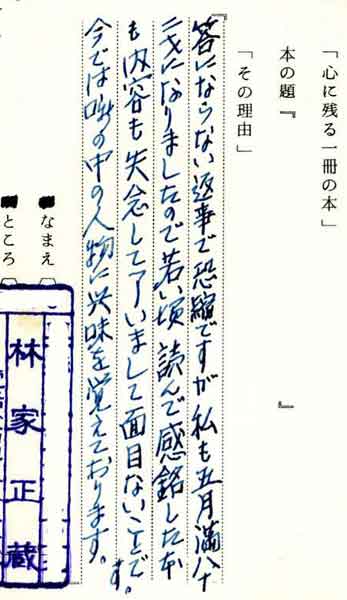 「心に残る一冊の本」
本の題『　』
「その理由」
『答にならない返事で恐縮ですが私も五月満八十
二才になりましたので若い頃読んで感銘した本
も内容も失念して了いまして面目ないことです。
今では噺の中の人物に興味を覚えております。
なまえ
ところ
林家正蔵